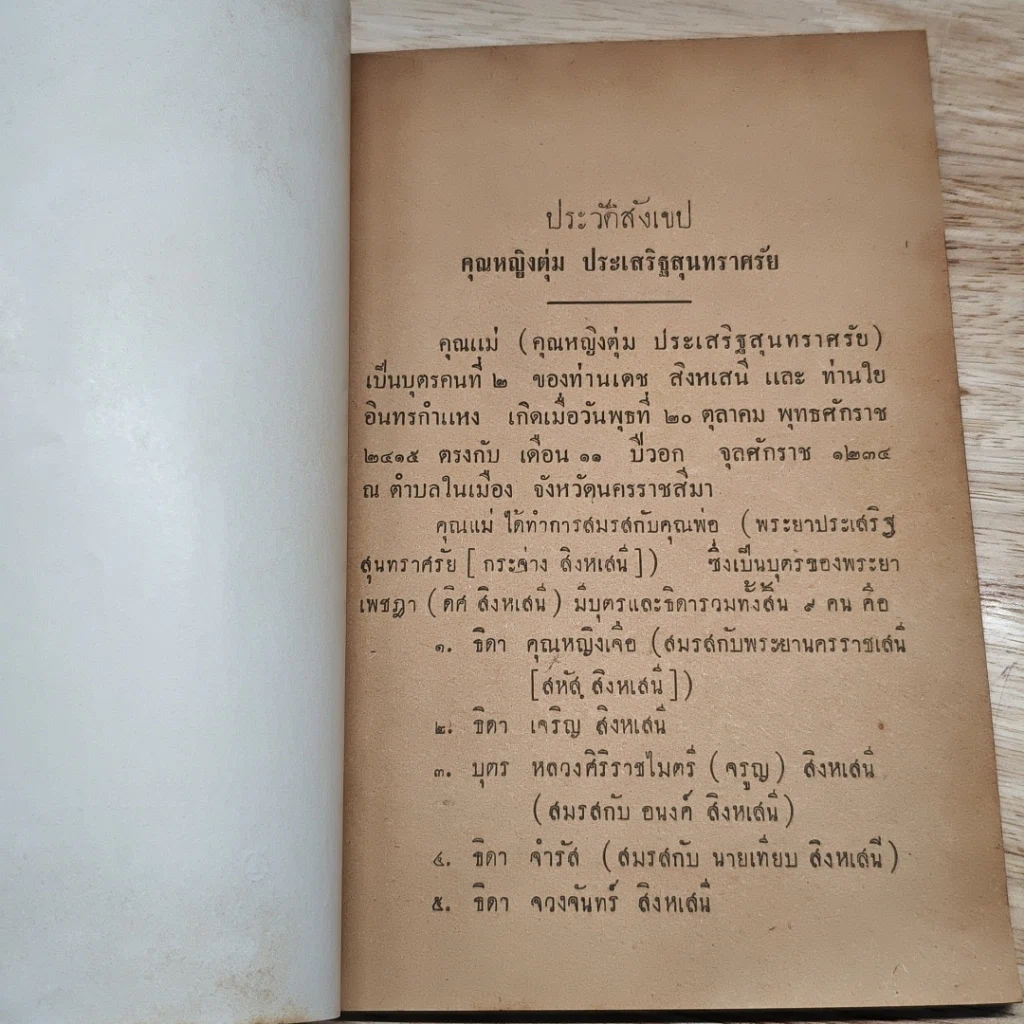 ประวัติสังเขป
คุณหญิงตุ่ม ประเสริฐสุนทราศรัย
คุณแม่ (คุณหญิงตุ่ม ประเสริฐสุนทราศรัย)
เป็นบุตรคนที่ ๒ ของท่านเดช สิงหเสนี และ ท่านใย
อินทรกำแหง เกิดเมื่อวันพุธที่ ๒๐ ตุลาคม พุทธศักราช
๒๔๑๕ ตรงกับ เดือน ๑๑ ปีวอก จุลศักราช ๑๒๓๔
ณ ตำบลในเมือง จังหวัดนครราชสีมา
คุณแม่ ได้ทำการสมรสกับคุณพ่อ (พระยาประเสริฐ
สุนทราศรัย [กระจ่าง สิงหเสนี]) ซึ่งเป็นบุตรของพระยา
เพชฎา (ดิศ สิงหเสนี) มีบุตรและธิดารวมทั้งสิ้น ๙ คน คือ
๑. ธิดา คุณหญิงเจือ (สมรสกับพระยานครราชเสนี
[สหัส สิงหเสนี])
๒. ธิดา เจริญ สิงหเสนี
๓. บุตร หลวงศิริราชไมตรี (จรูญ) สิงหเสนี
(สมรสกับ อนงค์ สิงหเสนี)
๔. ธิดา จำรัส (สมรสกับ นายเทียบ สิงหเสนี)
๕. ธิดา จวงจันทร์ สิงหเสนี